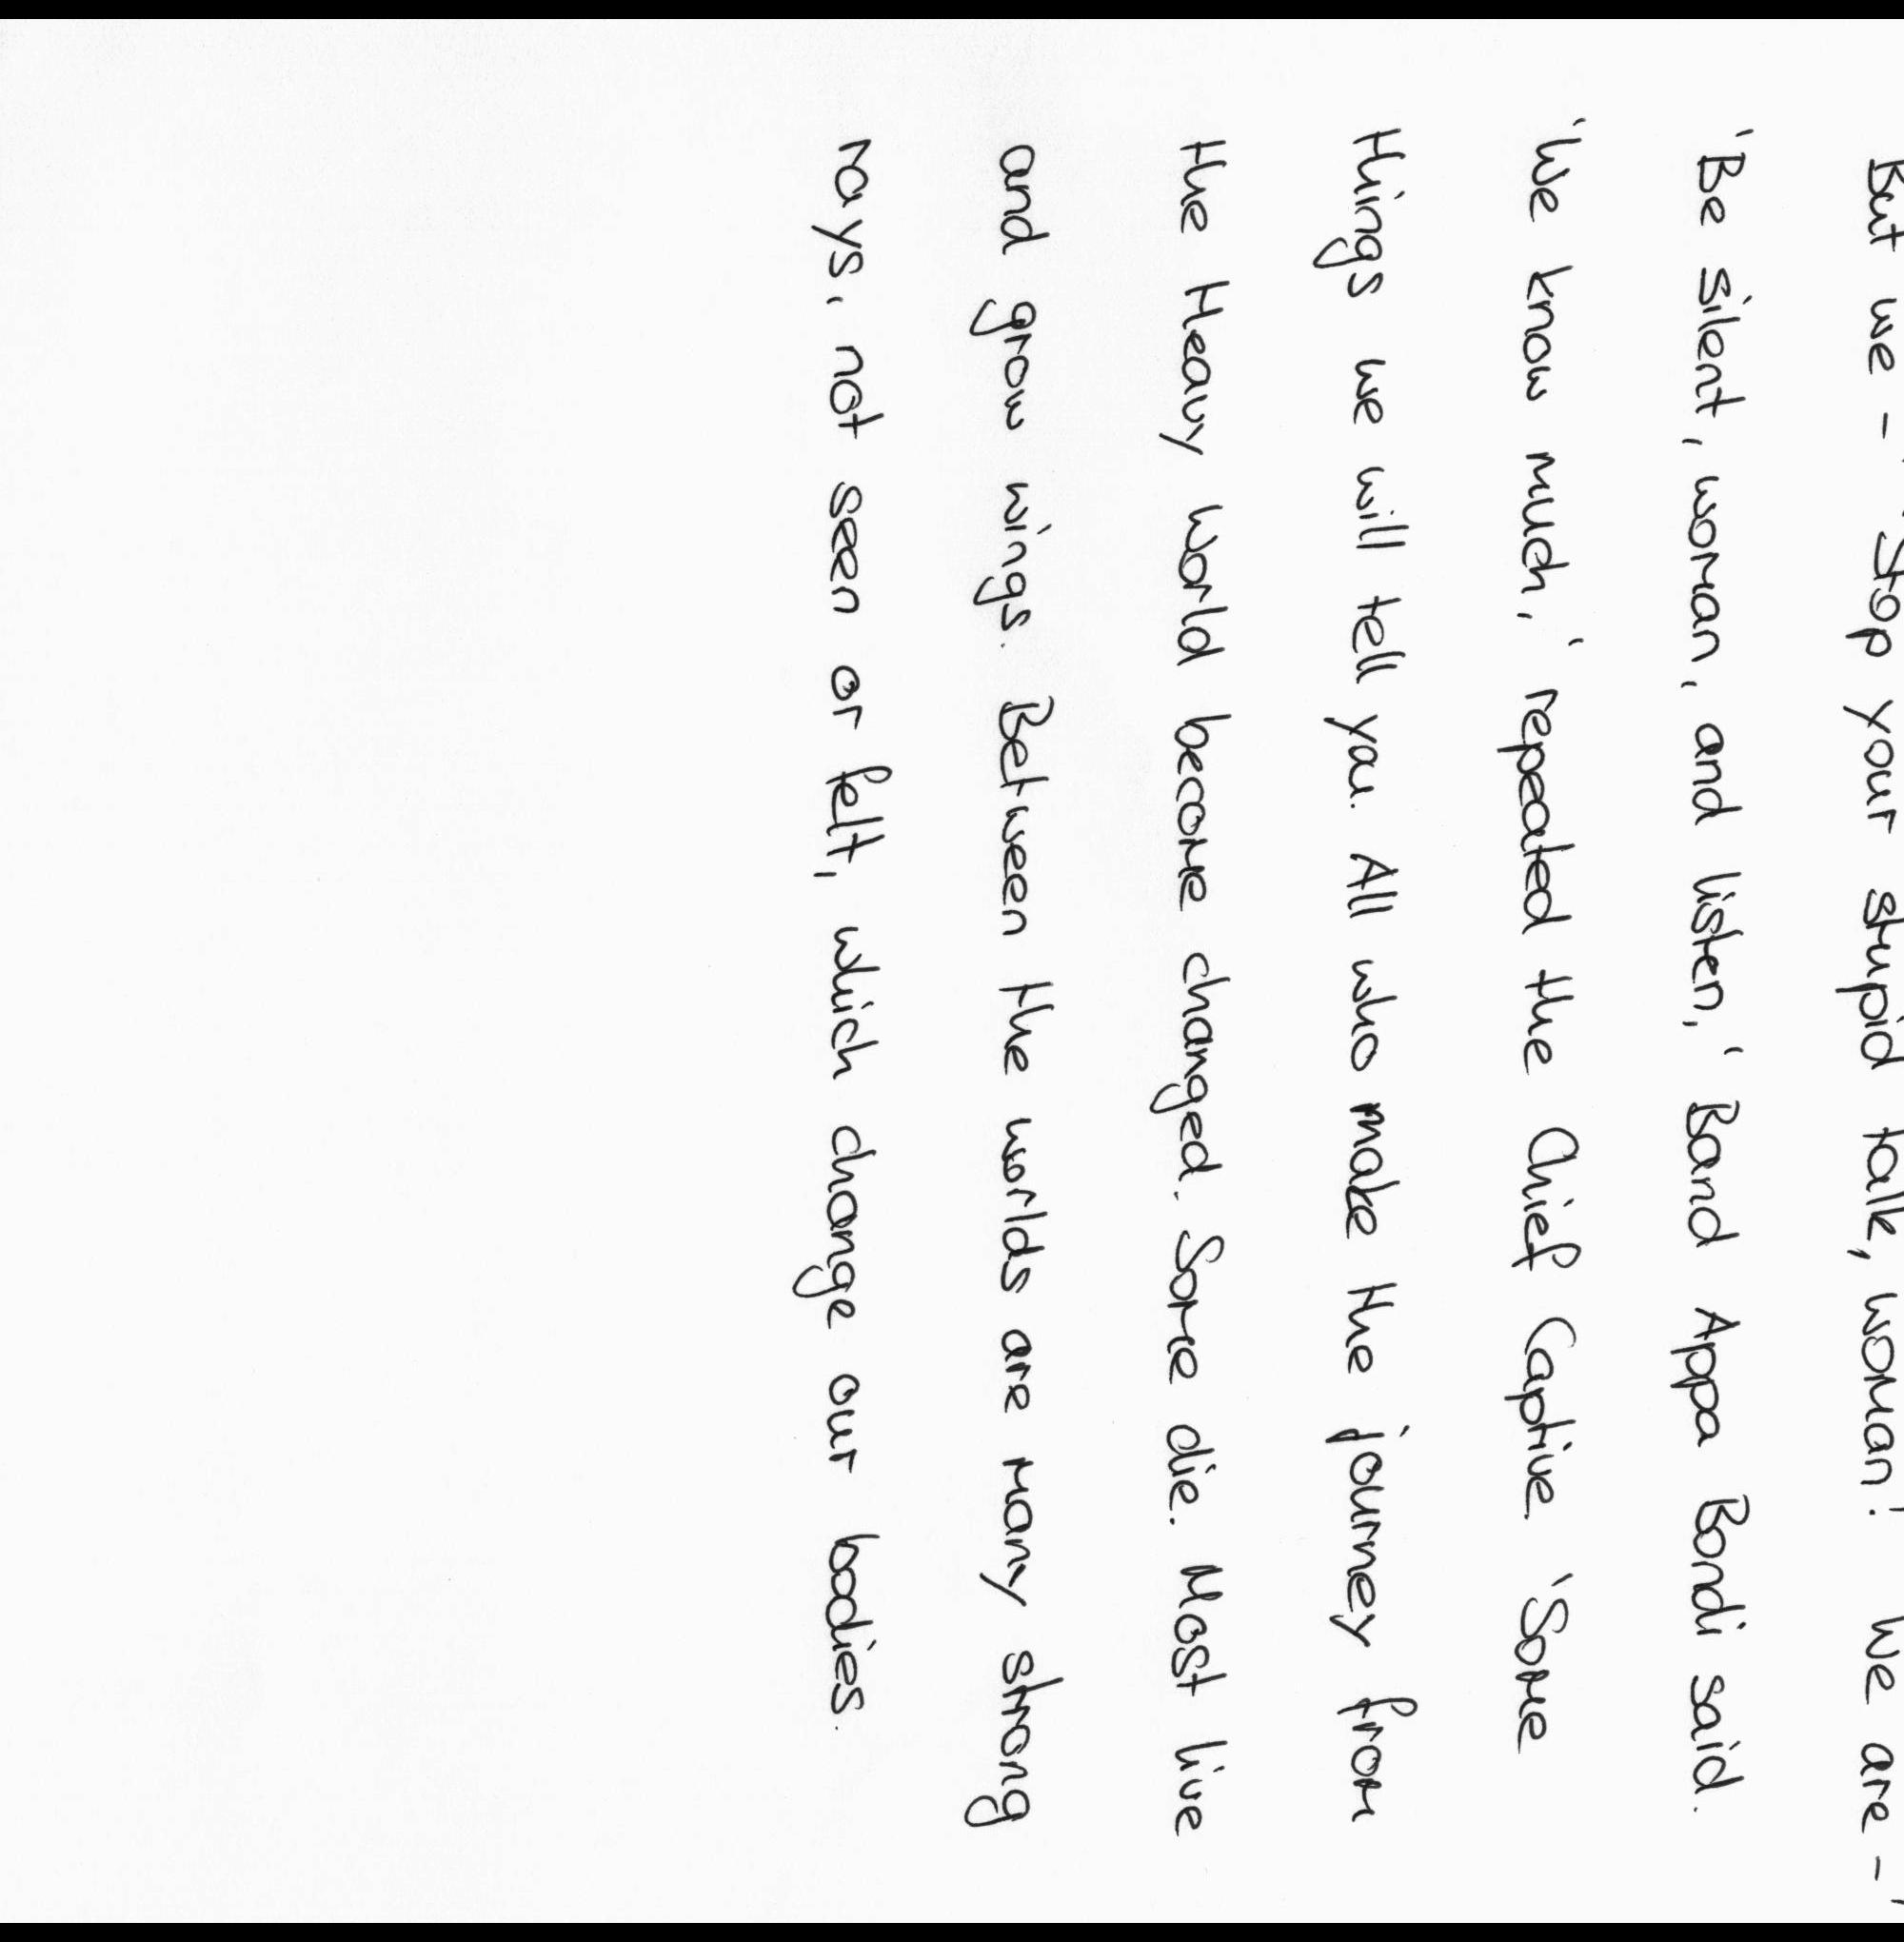 But we - " Stop your stupid talk, woman! We are - "
"Be silent, woman, and listen," Band Appa Bondi said.
"We know much," repeated the Chief Captive. "Some
things we will tell you. All who make the journey from
the Heavy World become changed. Some die. Most live
and grow wings. Between the worlds are many strong
rays, not seen or felt, which change our bodies.